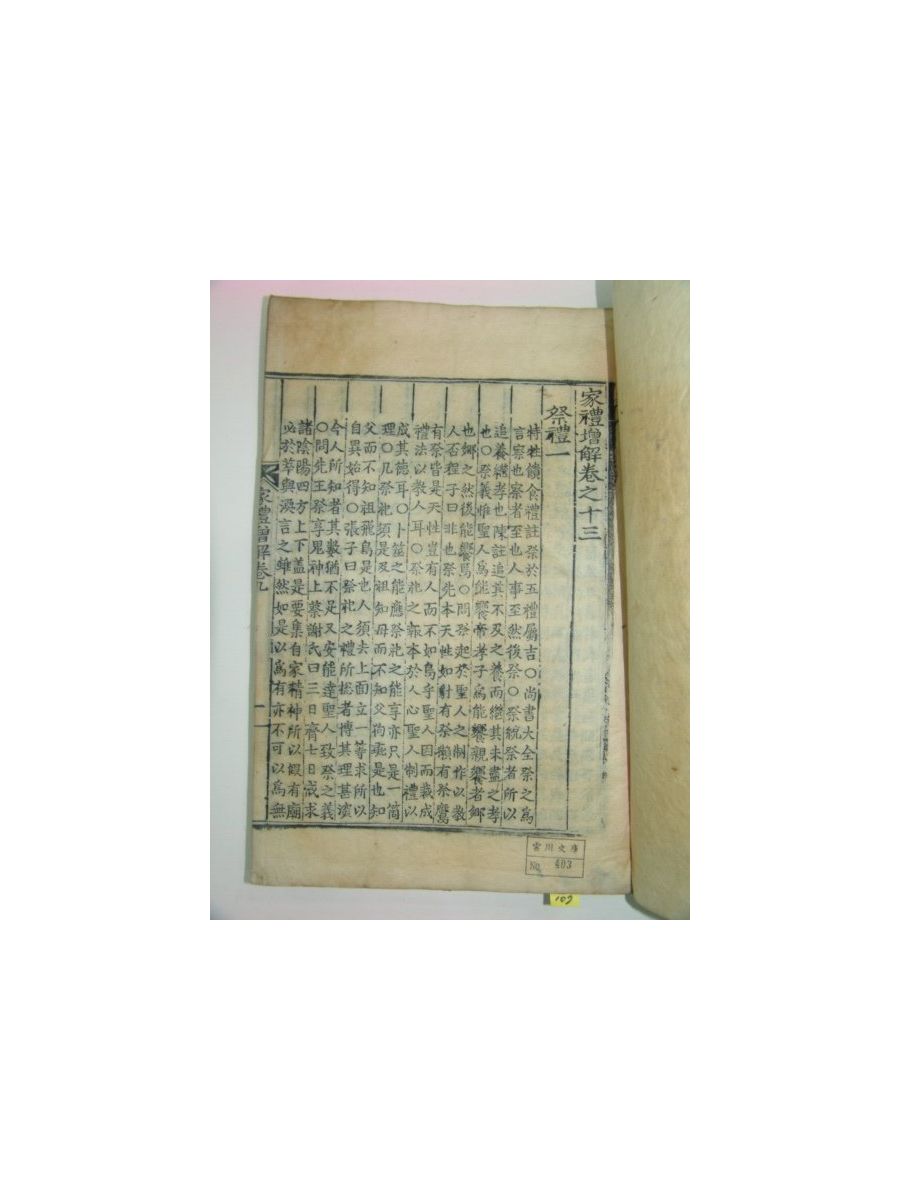 家禮增解卷之十三
祭禮一
特牲饋食禮註祭於五禮屬吉○尚書大全祭之爲
言察也察者至也人事至然後祭○祭統祭者所以
追養繼孝也陳註追其不及之養而繼其未盡之孝
也○祭義惟聖人爲能饗帝孝子爲能饗親饗者鄉
也鄉之然後能饗焉○問祭起於聖人之制作以教
人否程子曰非也祭先本天性如豺有祭獺有祭鷹
有祭皆是天性豈有人而不如鳥乎聖人因而裁成
禮法以教人耳○祭祀之報本於人心聖人制禮以
成其德耳○卜筮之能應祭祀之能享亦只是一箇
理○凡祭祀須是及祖知母而不知父狗彘是也知
父而不知祖飛鳥是也人須去上面立一等求所以
自異始得○張子曰祭祀之禮所捴者博其理甚深
今人所知者其數猶不足又安能達聖人致祭之義
○問先王祭享鬼神上蔡謝氏曰三日齊七日戒求
諸陰陽四方上下盖是要集自家精神所以假有廟
必於萃與渙言之雖然如是以爲有亦不可以爲無
家禮增解卷九
一
雲川文庫
No. 403
109